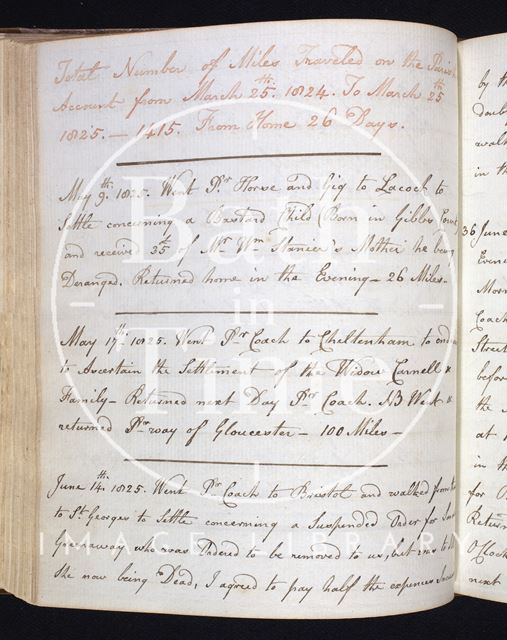 Total Number of Miles Traveled on the Parish
Account from March 25th. 1824. To March 25th
1825. — 1415. From Home 26 Days.
May 9th. 1825. Went Pr Horse and Gig to Lacock to
Settle concerning a Bastard Child (Born in Gibbs Court)
and received 35 of Mr Wm Mother he being
Deranged. Returned home in the Evening — 26 Miles —
May 17th. 1825. Went Pr Coach to Cheltenham to
to Ascertain the Settlement of the Widow Carnell &
Family — Returned next Day Pr Coach. NB Went &
returned Pr way of Gloucester — 100 Miles —
June 14th. 1825. Went Pr Coach to Bristol and walked from
to St. Georges to Settle concerning a Suspended Order for
Greenaway, who was Ordered to be removed to us, but
She now being Dead, I agreed to pay half the expences
by the
walk
in the
36 June
Evening
Coach
Street
before
the
at
in the
for
Return
O'Clock
next
Bath
in
Time
IMAGE LIBRARY